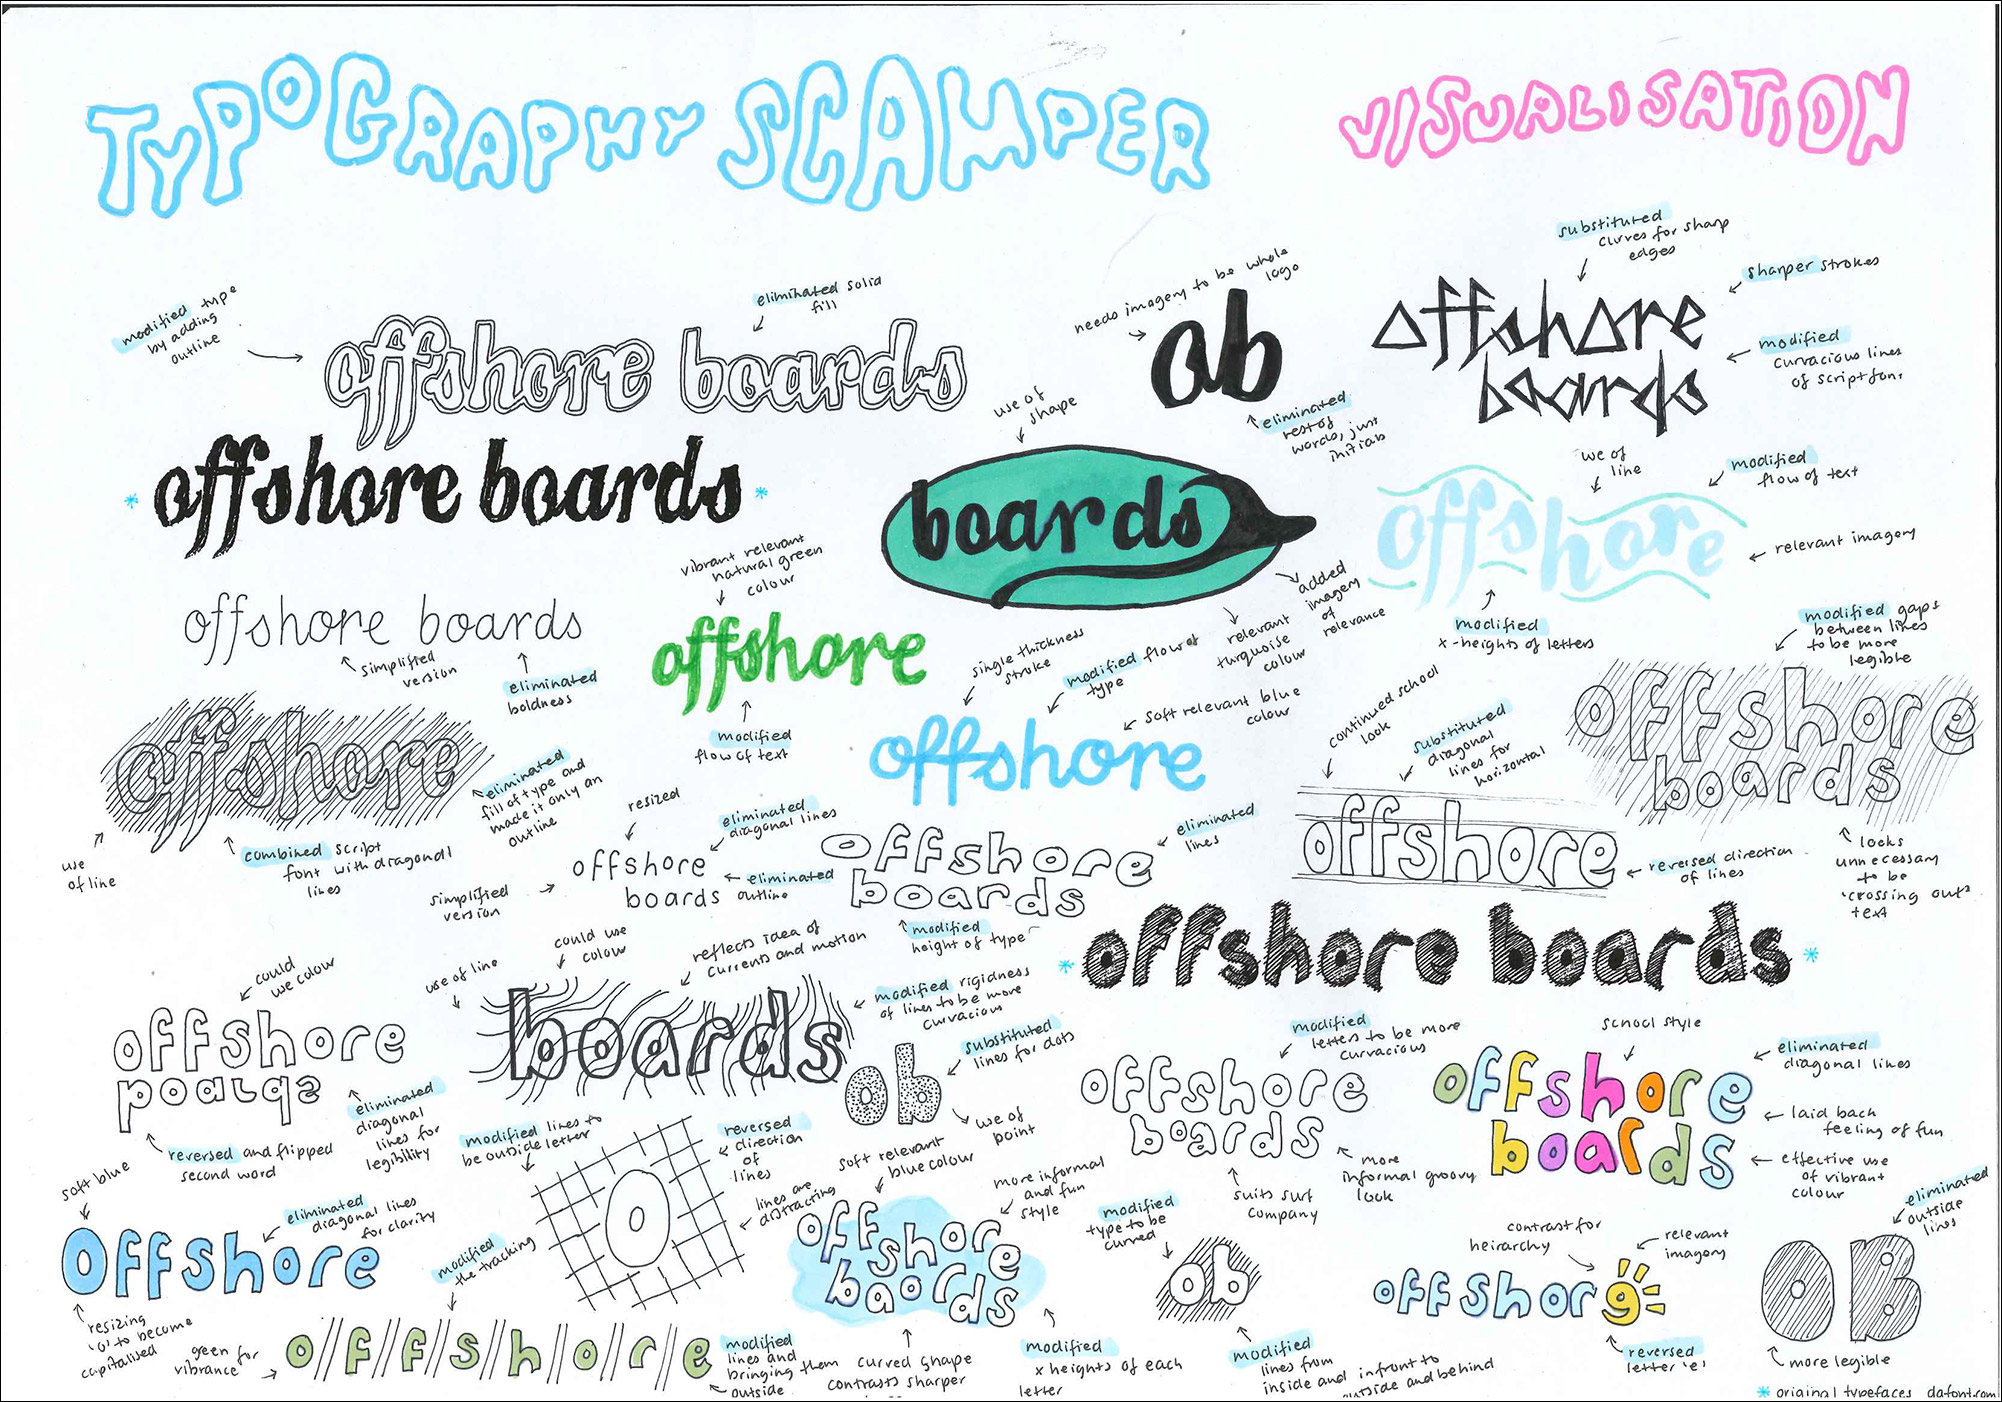 TYPOGRAPHY SCAMPER
VISUALISATION
modified type
by adding
outline
eliminated solid
fill
offshore boards
needs imagery to be whole
logo
ob
eliminated
rest of
words, just
initials
substituted
curves for sharp
edges
sharper strokes
modified
curvacious lines
of script font
offshore
boards
* offshore boards *
use of
shape
boards
added
imagery
of
relevance
relevant
turquoise
colour
use of
line
modified
flow of text
offshore
relevant imagery
modified
x-heights of letters
offshore boards
simplified
version
eliminated
boldness
vibrant relevant
natural green
colour
offshore
modified
flow of text
single thickness
stroke
modified flow of
type
soft relevant blue
colour
offshore
modified gaps
between lines
to be more
legible
offshore
boards
looks
unnecessary
to be
'crossing out'
text
offshore
use
of line
combined script
font with diagonal
lines
eliminated
fill of type and
made it only an
outline
resized
eliminated
diagonal lines
offshore
boards
simplified
version
eliminated
outline
eliminated
lines
offshore
boards
modified
height of type
continued school
look
substituted
diagonal
lines for
horizontal
offshore
reversed direction
of lines
* offshore boards *
could
use colour
offshore
boards
reversed and flipped
second word
eliminated
diagonal
lines for
legibility
use of line
could use
colour
reflects idea of
currents and motion
boards
modified rigidness
of lines to be more
curvacious
substituted
lines for dots
ob
use of
point
modified
letters to be more
curvacious
offshore
boards
suits surf
company
more
informal groovy
look
school style
eliminated
diagonal lines
offshore
boards
laid back
feeling of fun
effective use
of vibrant
colour
soft blue
eliminated
diagonal lines
for clarity
Offshore
resizing
'o' to become
capitalised
modified lines to
be outside letter
reversed
direction
of
lines
O
lines are
distracting
modified
the tracking
green for
vibrance
o//f//f//s//h//o//r//e
modified
lines and
bringing them
outside
soft relevant
blue colour
more informal
and fun
style
offshore
boards
curved shape
contrasts sharper
modified
x heights of each
letter
modified
type to be
curved
ob
modified
lines from
inside and infront to
outside and behind
contrast for
heirarchy
relevant
imagery
offshore
reversed
letter 'e'
eliminated
outside
lines
OB
more legible
* original typefaces dafont.com